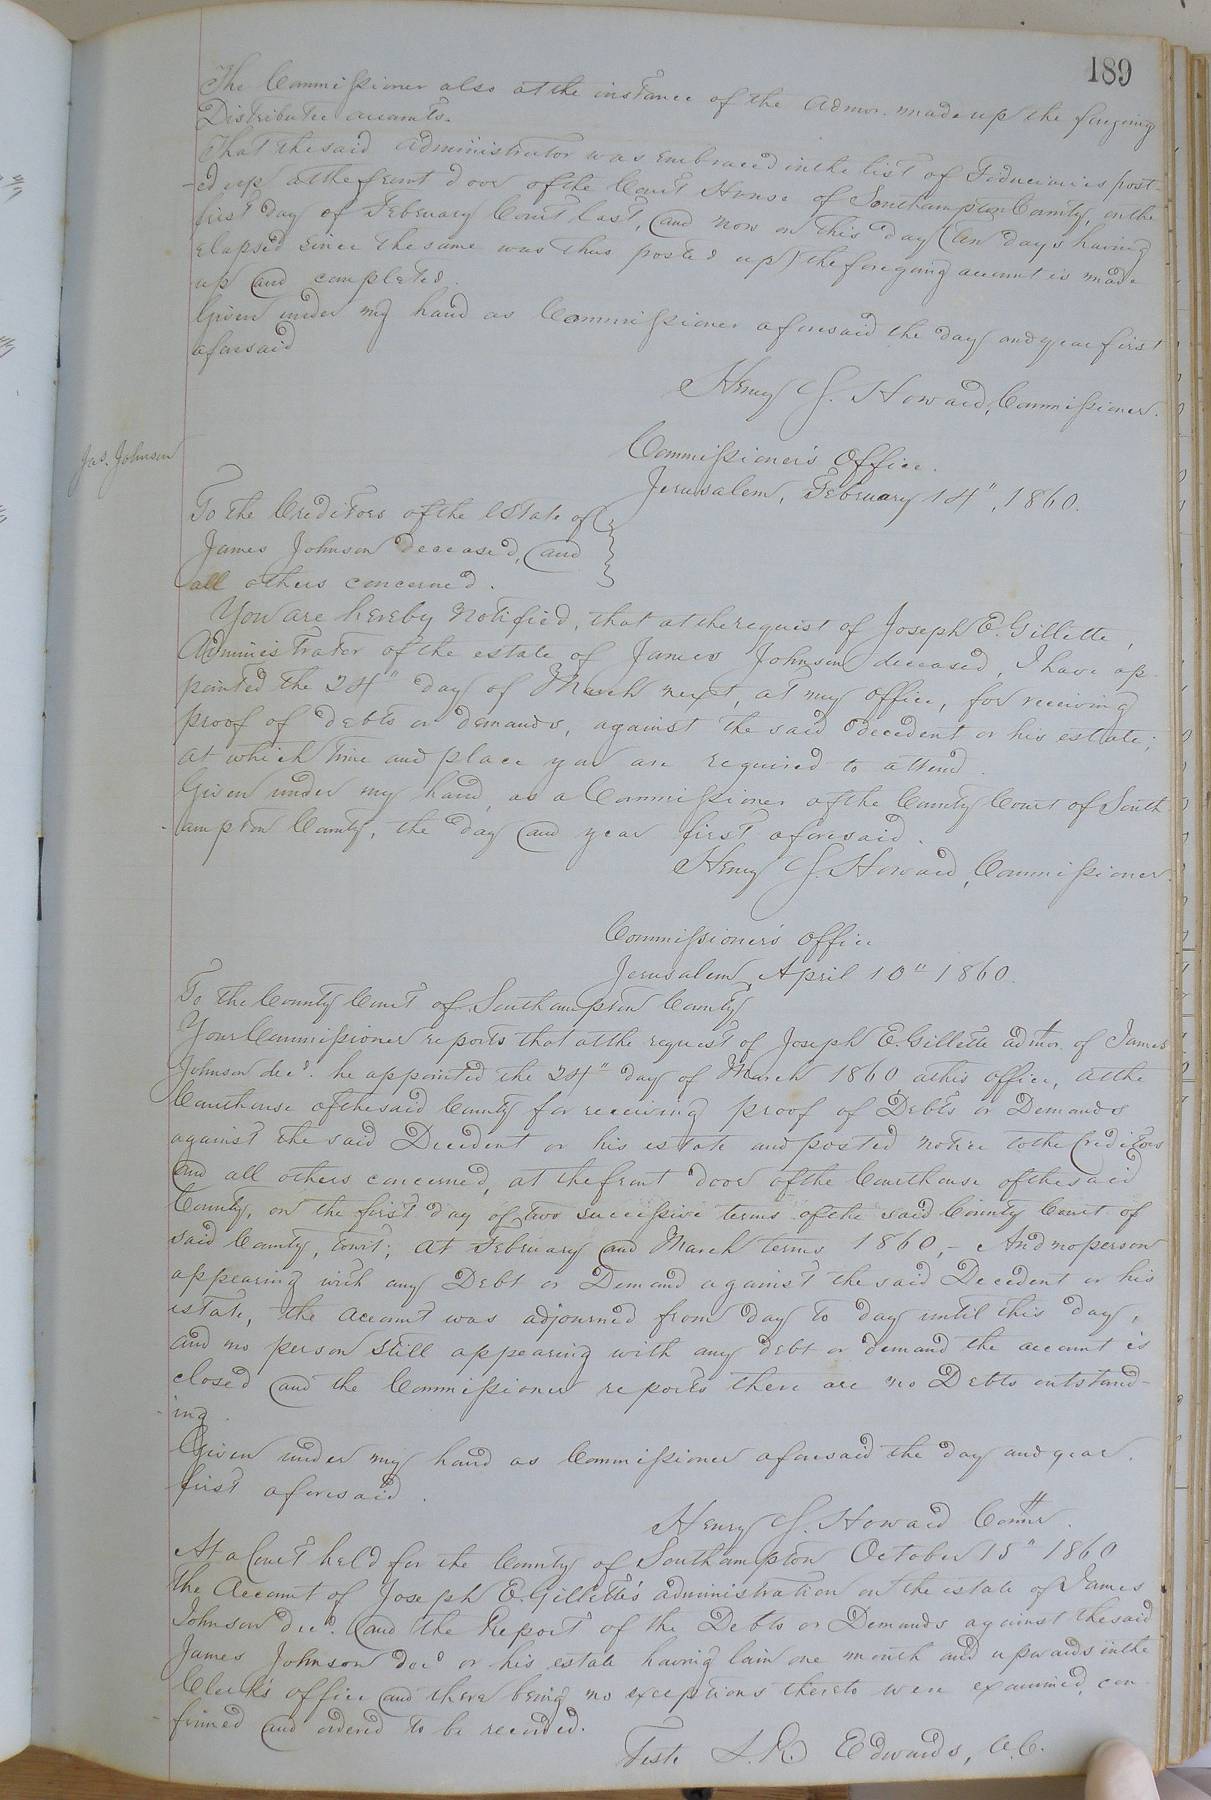 189
The Commissioner also at the instance of the Admor. made up the foregoing
Distributee accounts.
That the said Administrator was embraced in the list of Fiduciaries post-
-ed up at the front door of the Court House of Southampton County, on the
first day of February Court last, and now on this day (ten days having
elapsed since the same was thus posted up) the foregoing account is made
up and completed.
Given under my hand as Commissioner aforesaid the day and year first
aforesaid
Henry J. Howard, Commissioner.
Jas. Johnson
Commissioner's Office.
Jerusalem, February 14", 1860.
To the Creditors of the Estate of
James Johnson deceased, and
all others concerned.
You are hereby Notified, that at the request of Joseph E. Gillette,
Administrator of the estate of James Johnson deceased, I have ap-
pointed the 24" day of March next, at my office, for receiving
proof of debts or demands, against the said decedent or his estate;
at which time and place you are required to attend.
Given under my hand, as a Commissioner of the County Court of South
-ampton County, the day and year first aforesaid.
Henry J. Howard, Commissioner.
Commissioner's Office
Jerusalem, April 10" 1860.
To the County Court of Southampton County
Your Commissioner reports that at the request of Joseph E. Gillette admor. of James
Johnson decd. he appointed the 24" day of March 1860 at his office, at the
Courthouse of the said County for receiving proof of Debts or Demands
against the said Decedent or his estate and posted notice to the Creditors
and all others concerned, at the front door of the Courthouse of the said
County, on the first day of two successive terms of the said County Court of
said County, towit; at February and March terms 1860,- And no person
appearing with any Debt or Demand against the said Decedent or his
estate, the account was adjourned from day to day until this day,
and no person still appearing with any debt or demand the account is
closed and the Commissioner reports there are no Debts outstand-
-ing.
Given under my hand as Commissioner aforesaid the day and year
first aforesaid.
Henry J. Howard Commr.
At a Court held for the County of Southampton October 15" 1860
The Account of Joseph E. Gillette's administration on the estate of James
Johnson decd. and the Report of the Debts or Demands against the said
James Johnson decd or his estate having lain one month and upwards in the
Clerk's office and there being no exceptions thereto were examined, con-
-firmed and ordered to be recorded.
Teste L. R. Edwards, C.C.